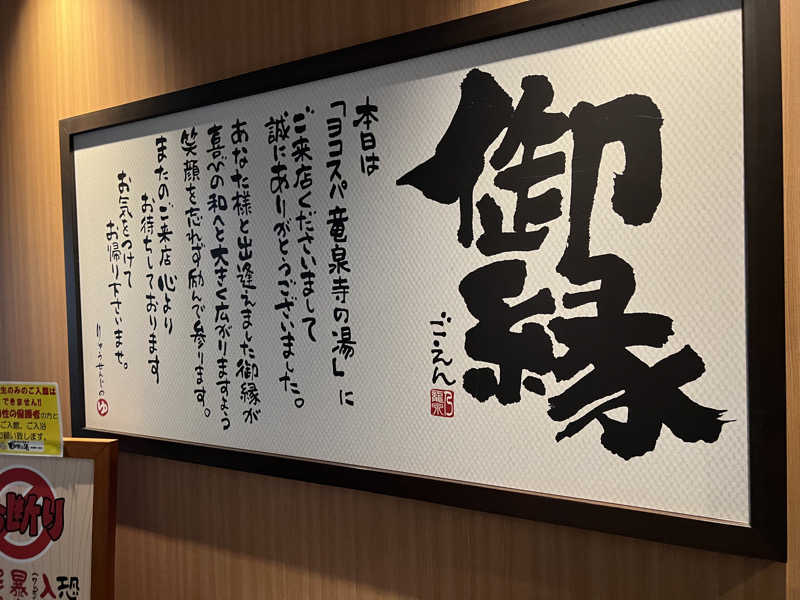 御縁
ご・えん
本日は
「ヨコスパ竜泉寺の湯」に
ご来店くださいまして
誠にありがとうございました。
あなた様と出逢えました御縁が
喜びの和へと大きく広がりますよう
笑顔を忘れず励んで参ります。
またのご来店心より
お待ちしております
お気をつけて
お帰り下さいませ。
りゅうせんじのゆ
生のみのご入館は
できません!!
性の保護者の方と
ご入館、ご入浴
願い致します。
お断り
恐
入
暴